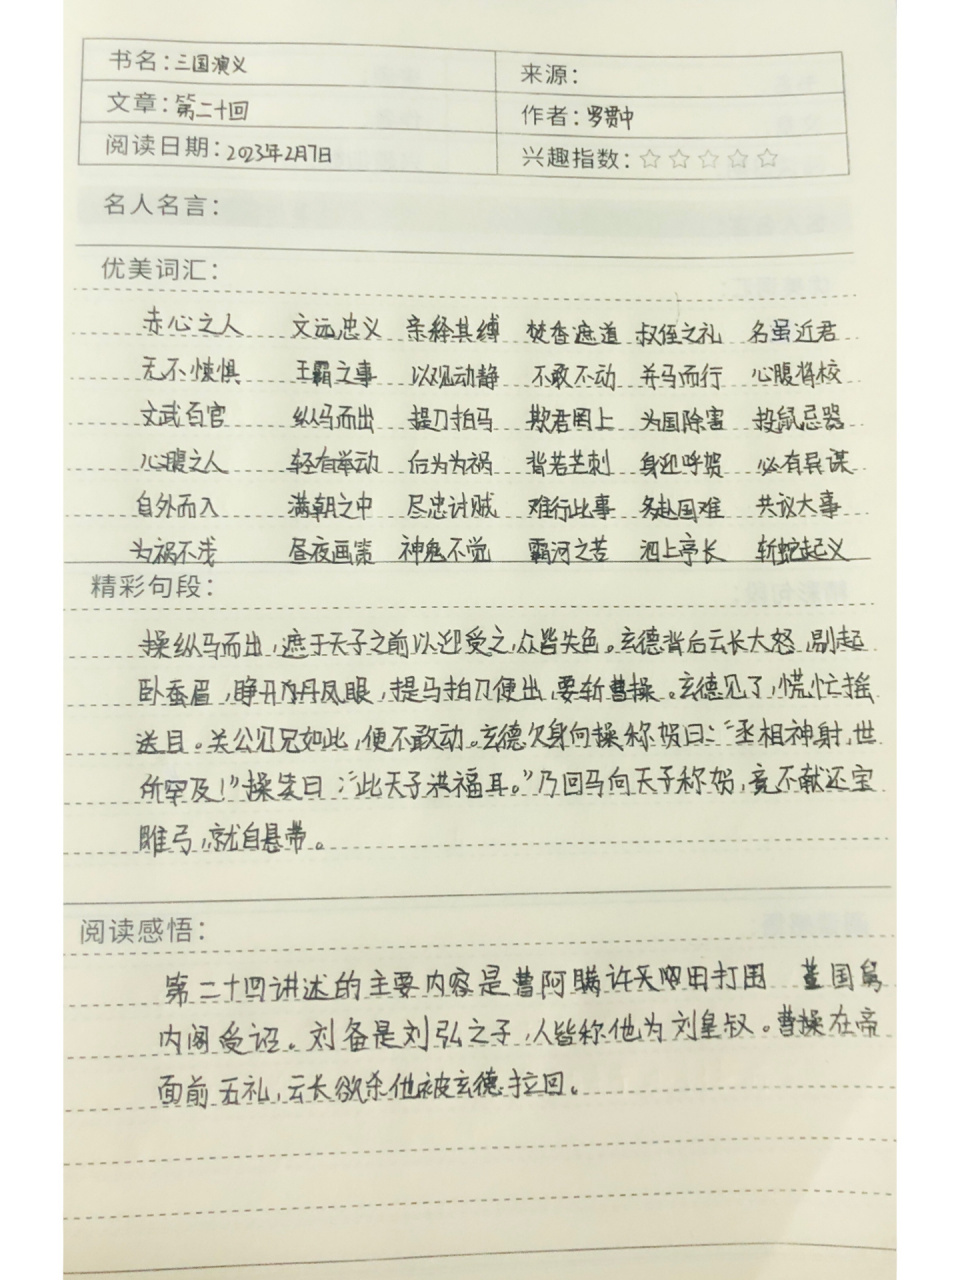 书名：三国演义
来源：
文章：第二十回
作者：罗贯中
阅读日期：2023年2月7日
兴趣指数：☆☆☆☆☆
名人名言：
优美词汇：
赤心之人 文远忠义 亲释其缚 焚香遮道 叔侄之礼 名虽近君
无不悚惧 王霸之事 以观动静 不敢不动 并马而行 心腹将校
文武百官 纵马而出 提刀拍马 欺君罔上 为国除害 投鼠忌器
心腹之人 轻有举动 后为为祸 背若芒刺 身迎呼贺 必有异谋
自外而入 满朝之中 尽忠讨贼 难行此事 务赴国难 共议大事
为祸不浅 昼夜画策 神鬼不觉 霸河之苦 泗上亭长 斩蛇起义
精彩句段：
操纵马而出，遮于天子之前以迎受之，众皆失色。玄德背后云长大怒，剔起
卧蚕眉，睁开丹凤眼，提马拍刀便出，要斩曹操。玄德见了，慌忙摇
送目。关公见兄如此，便不敢动。玄德欠身向操称贺曰：“丞相神射，世
所罕及！”操笑曰：“此天子洪福耳。”乃回马向天子称贺，竟不献还宝
雕弓，就自悬带。
阅读感悟：
第二十回讲述的主要内容是曹阿瞒许田打围 董国舅
内阁受诏。刘备是刘弘之子，人皆称他为刘皇叔。曹操在帝
面前无礼，云长欲杀他被玄德拉回。